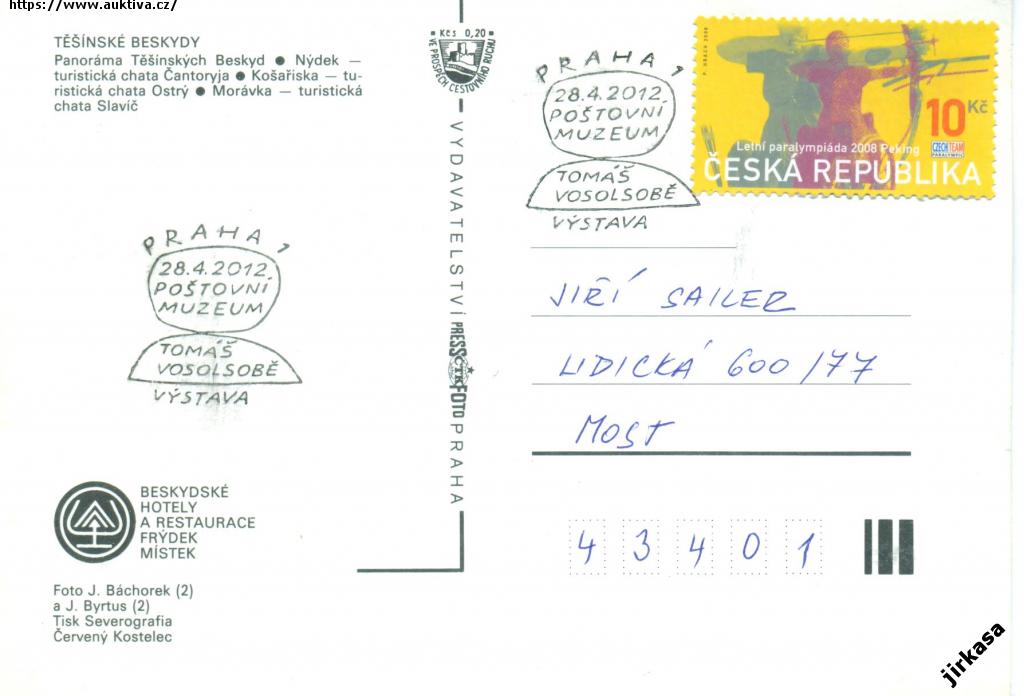 https://www.auktiva.cz/
TĚŠÍNSKÉ BESKYDY
Panoráma Těšínských Beskyd ● Nýdek —
turistická chata Čantoryja ● Košařiska — tu-
ristická chata Ostrý ● Morávka — turistická
chata Slavíč
Kčs 0,20
VE PROSPĚCH CESTOVNÍHO RUCHU
PRAHA 1
28.4.2012
POŠTOVNÍ
MUZEUM
TOMÁŠ
VOSOLSOBĚ
VÝSTAVA
P. HRACH 2008
10 Kč
Letní paralympiáda 2008 Peking
CZECH TEAM
PARALYMPIC
ČESKÁ REPUBLIKA
PRAHA 1
28.4.2012
POŠTOVNÍ
MUZEUM
TOMÁŠ
VOSOLSOBĚ
VÝSTAVA
VYDAVATELSTVÍ PRESSČTKFOTO PRAHA
JIŘÍ SAILER
LIDICKÁ 600/77
MOST
43401
BESKYDSKÉ
HOTELY
A RESTAURACE
FRÝDEK
MÍSTEK
Foto J. Báchorek (2)
a J. Byrtus (2)
Tisk Severografia
Červený Kostelec
jirkasa